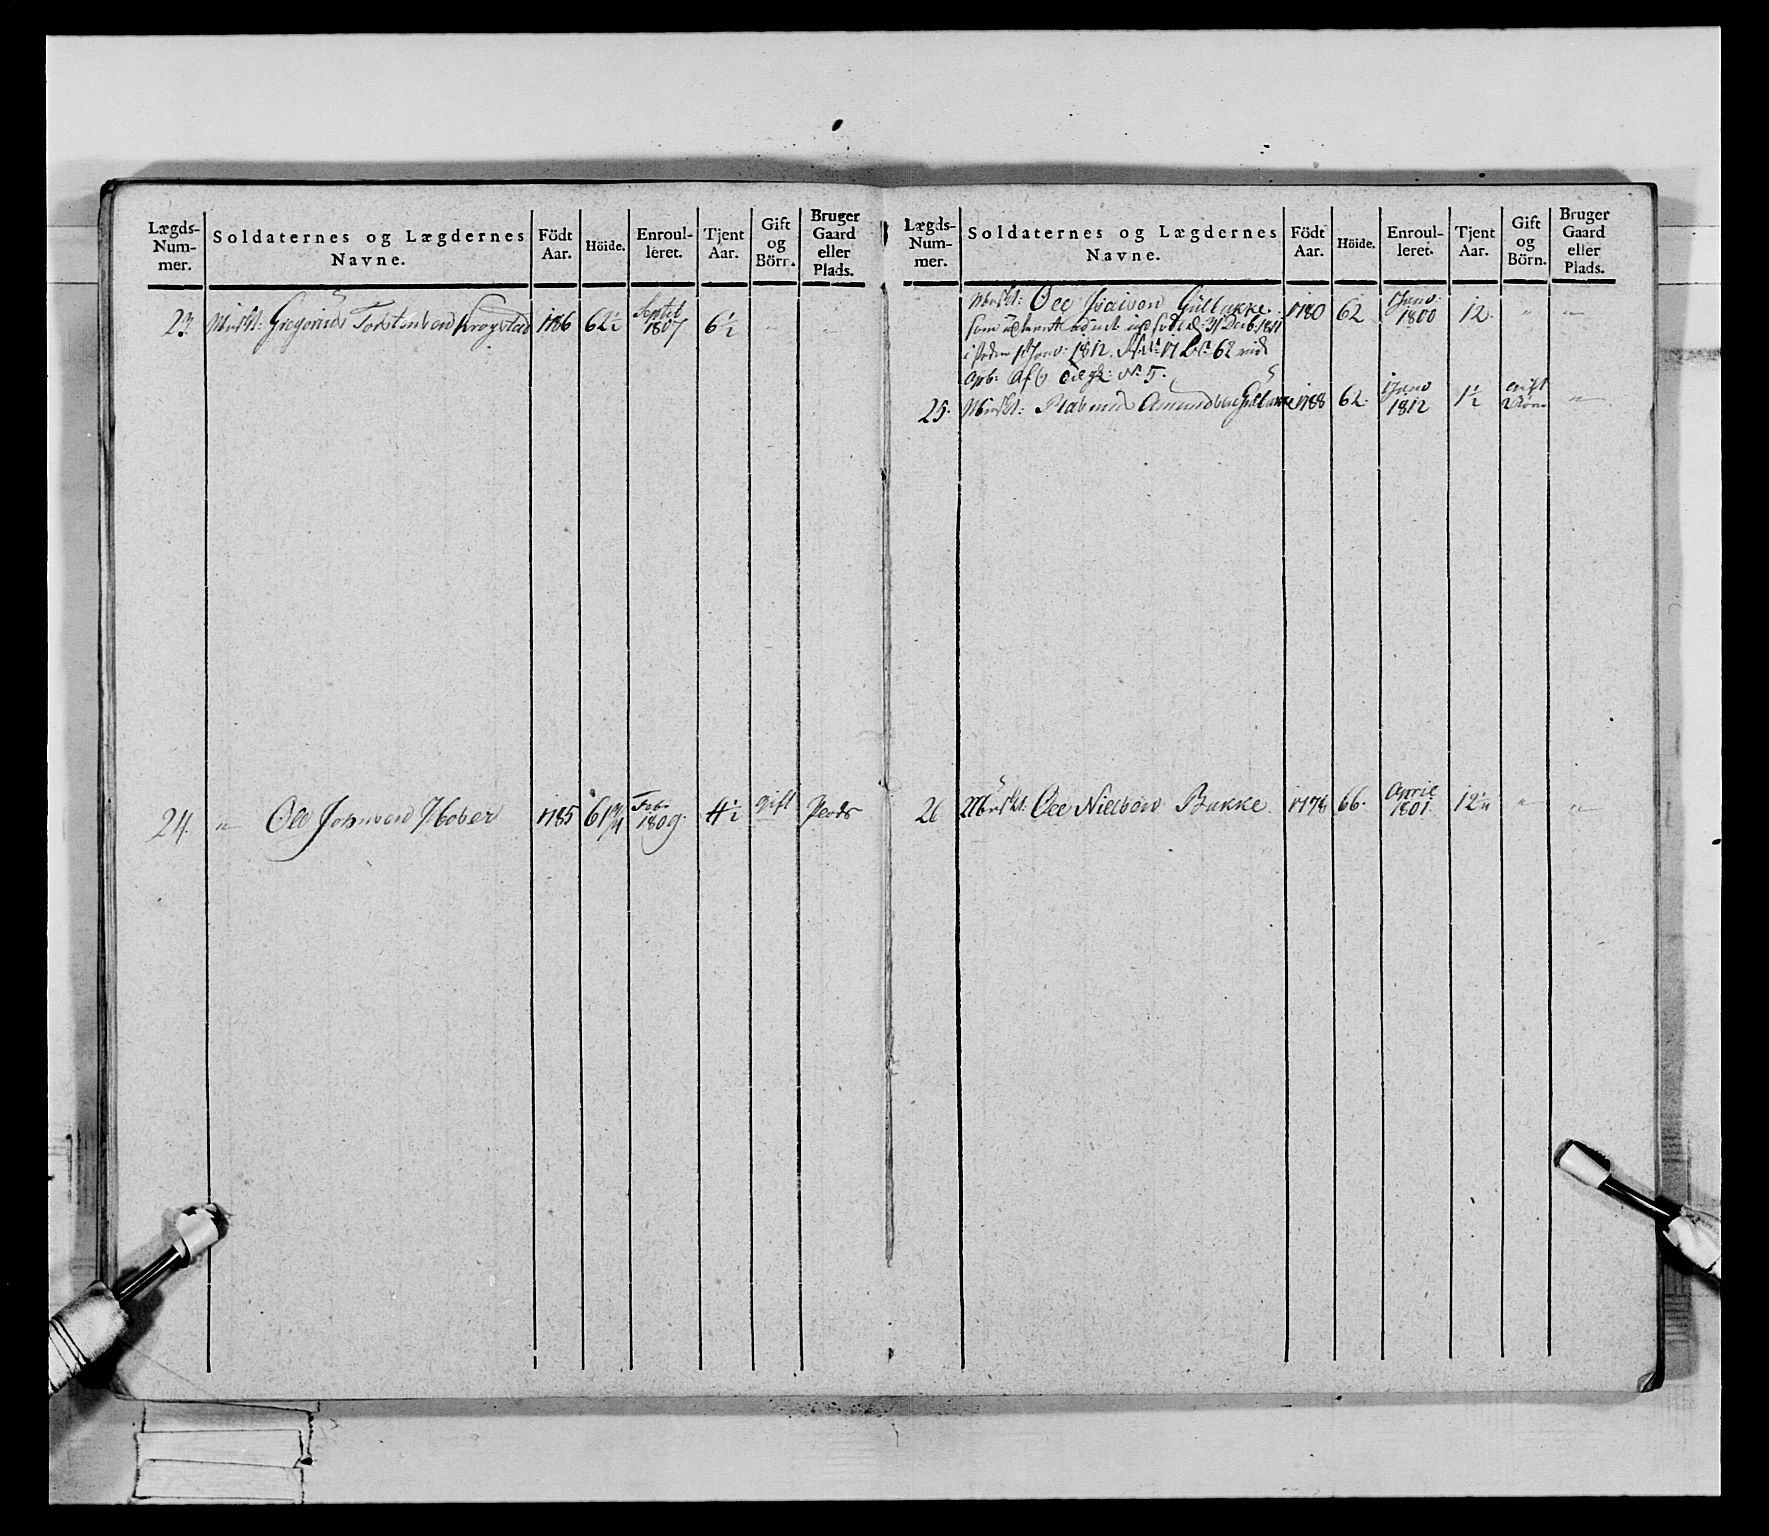 Lægds-Num-mer. Soldaternes og Lægdernes Navne. Födt Aar. Höide. Enroul-leret. Tjent Aar. Gift og Börn. Bruger Gaard eller Plads.
23. Muskt: Gregorius Torstensen Krogstad 1786 62½ Septbr 1807 6½ " "
24. " Ole Johnsen 1785 61¾ Feb: 1809. 4½ gift Plads
Lægds-Num-mer. Soldaternes og Lægdernes Navne. Födt Aar. Höide. Enroul-leret. Tjent Aar. Gift og Börn. Bruger Gaard eller Plads.
Muskt: Ole Gulbakke. 1780 62 Janv: 1800 12. " "
som 31 Decb. 1811
i steden 1 Janv: 1812. 17 62 med
No 5.
25. Muskt: Rasmus Amundsen 1788 62. Janv 1812 1½ gift "
26 Muskt: Ole Nielsen Bakke. 1778 66. April 1801 12 " "